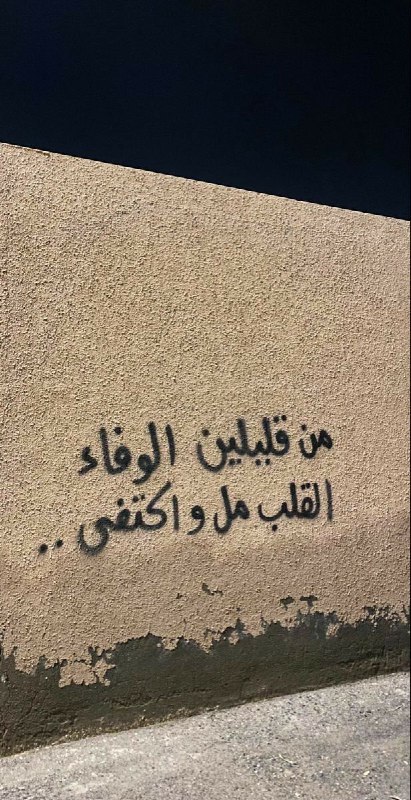 من قليلين الوفاء
القلب مل و اكتفى ..